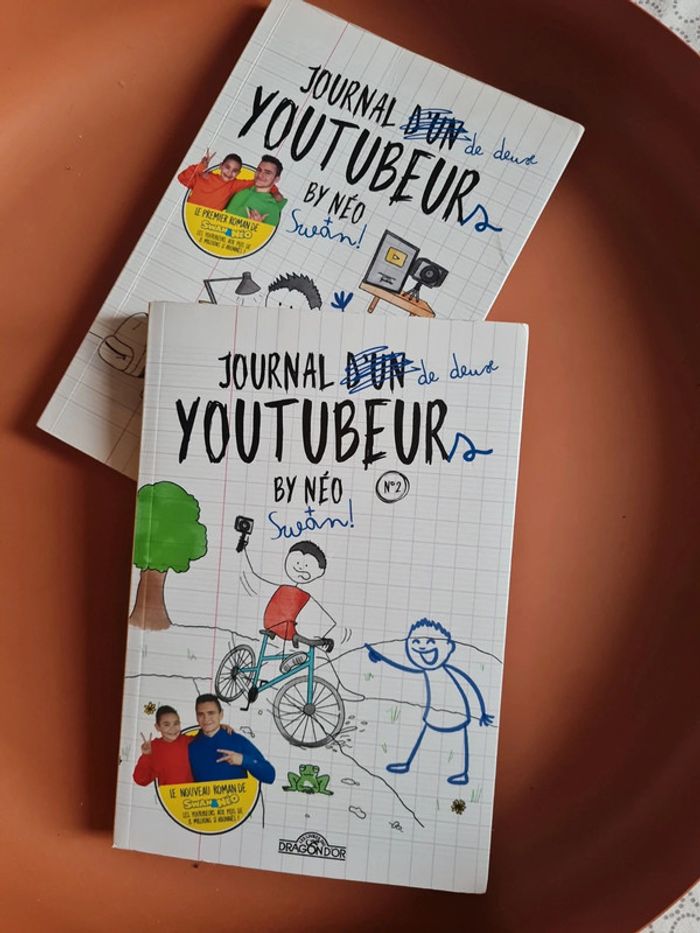 JOURNAL D'UN de deux
YOUTUBEURs
BY NÉO
+
Swan!
LE PREMIER ROMAN DE
SWAN & NÉO
LES YOUTUBEURS AUX PLUS DE
MILLIONS D'ABONNÉS !
JOURNAL D'UN de deux
YOUTUBEURs
BY NÉO
N°2
+
Swan!
LE NOUVEAU ROMAN DE
SWAN & NÉO
LES YOUTUBEURS AUX PLUS DE
MILLIONS D'ABONNÉS !
LES LIVRES DU
DRAGON D'OR